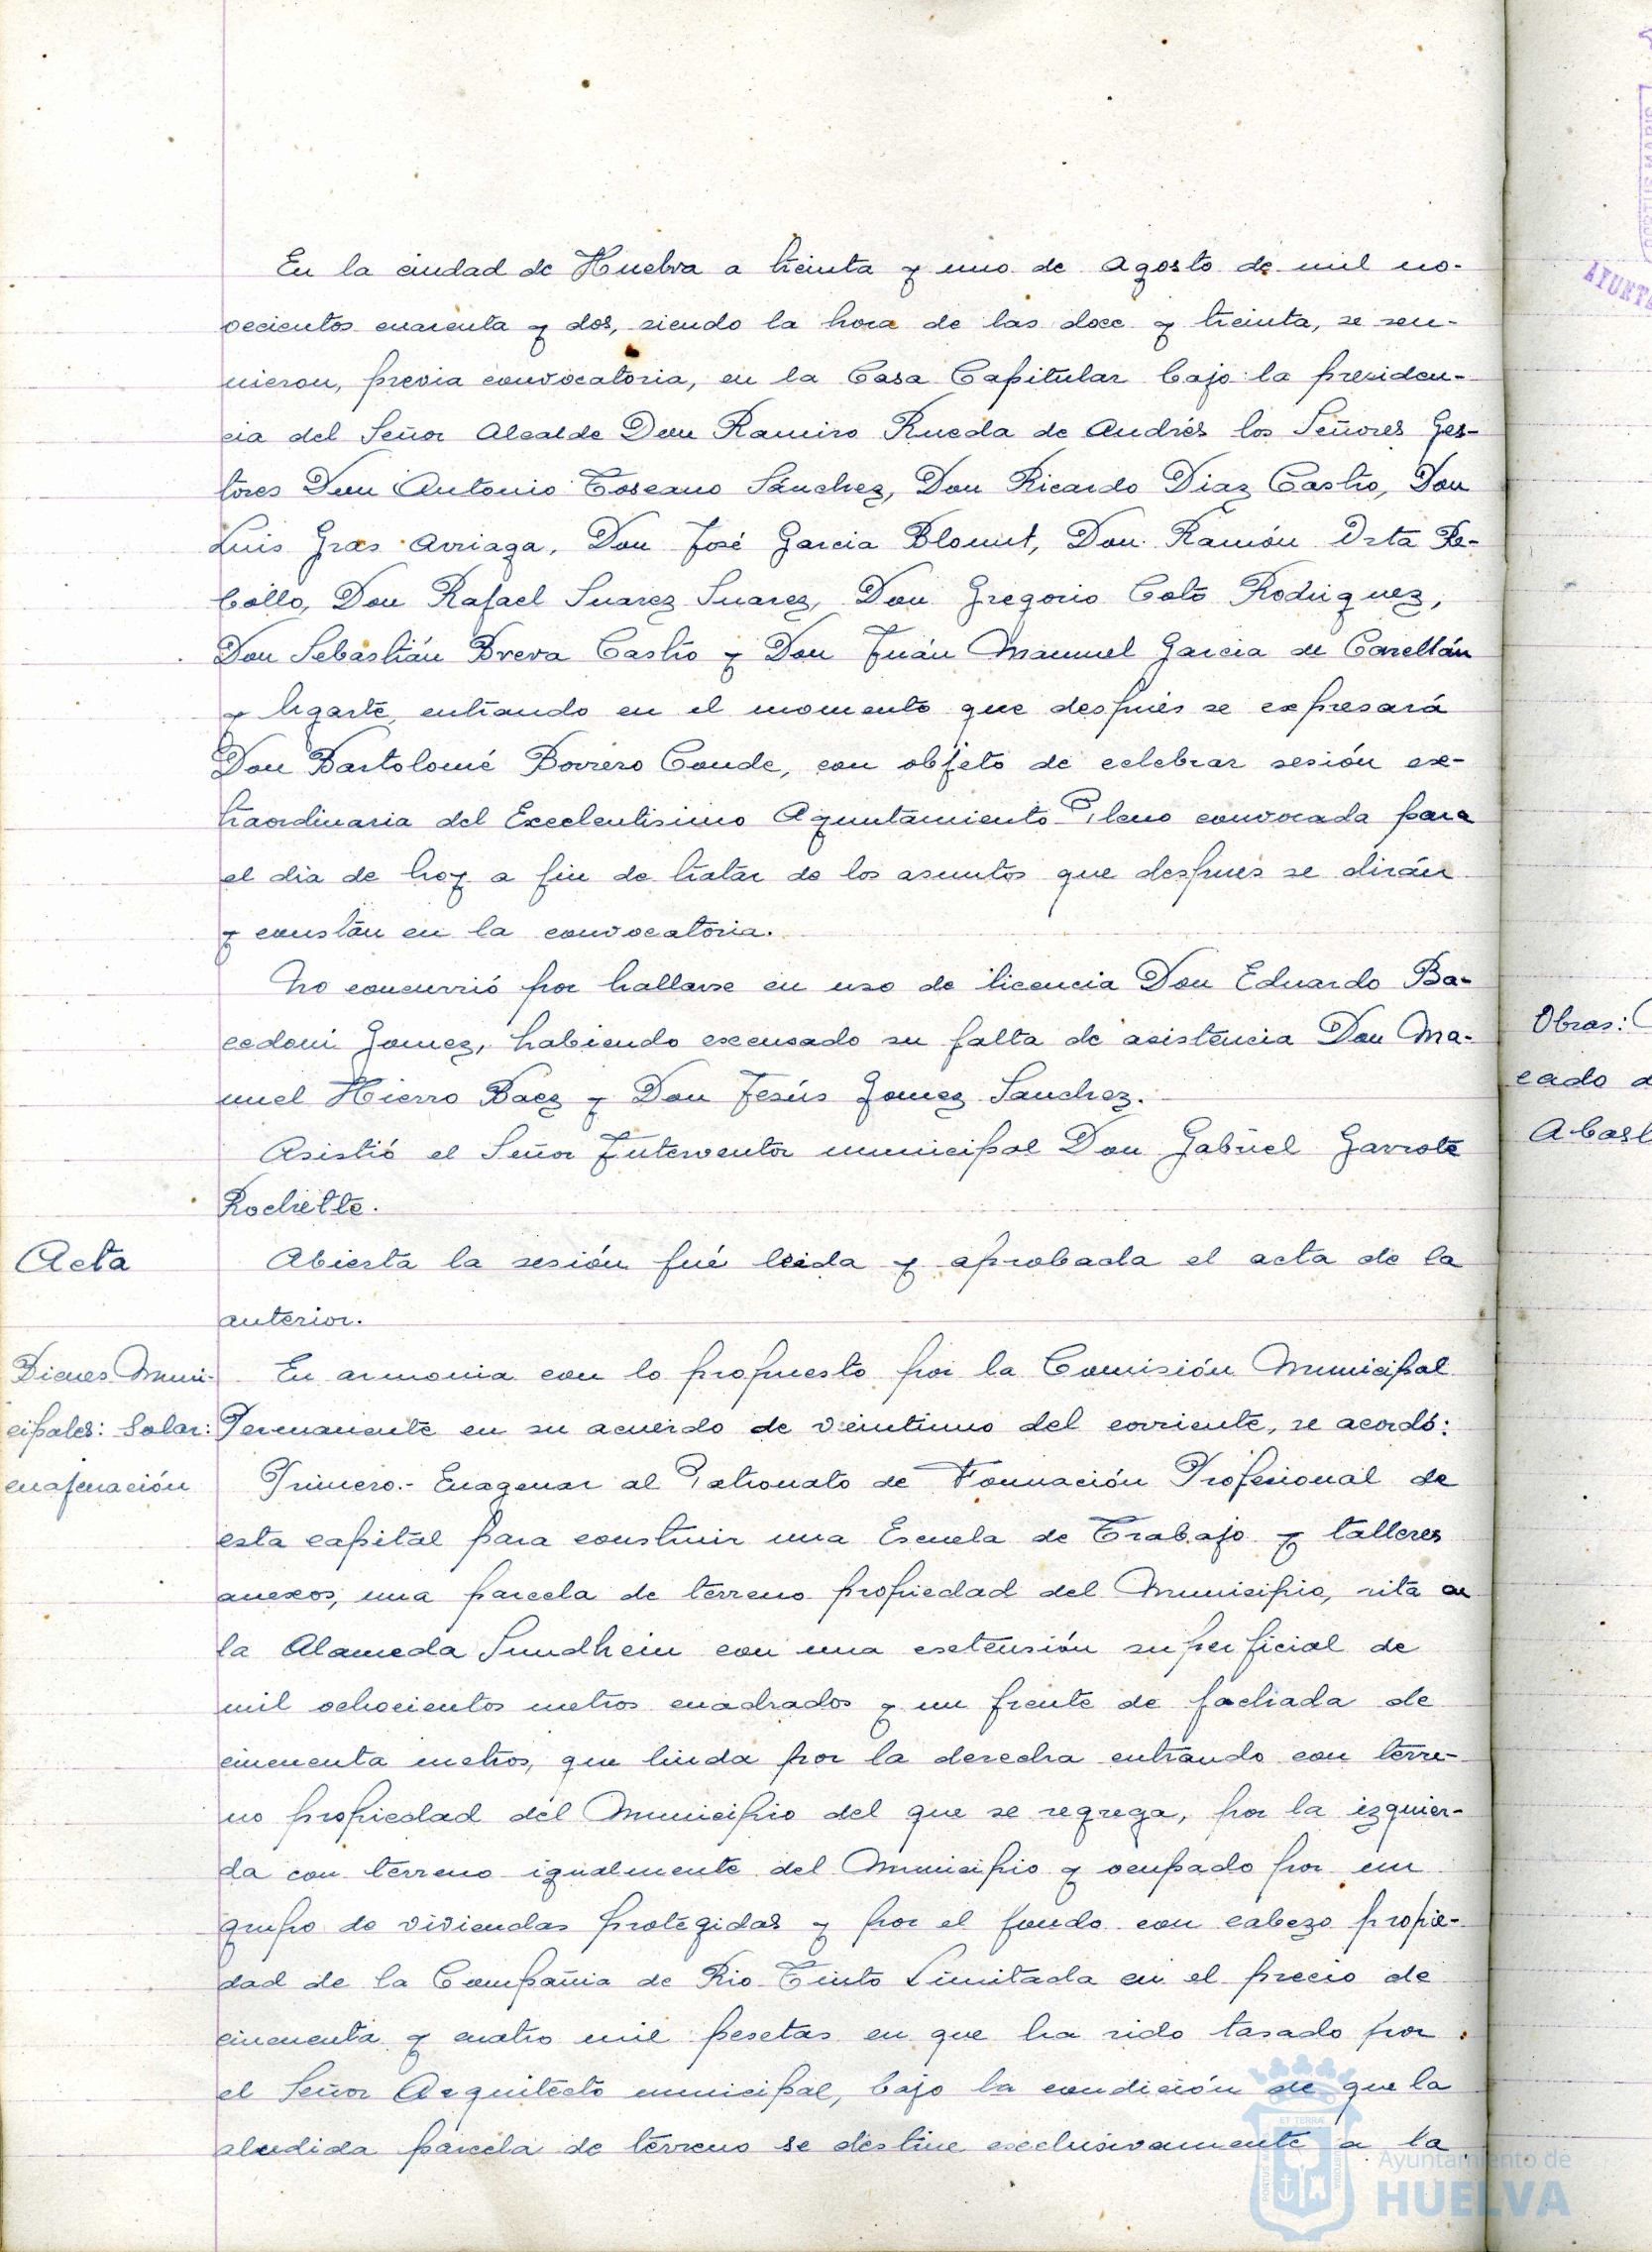 En la ciudad de Huelva a treinta y uno de agosto de mil no-
vecientos cuarenta y dos, siendo la hora de las doce y treinta, se reu-
nieron, previa convocatoria, en la Casa Capitular bajo la presiden-
cia del Señor Alcalde Don Ramiro Rueda de Andrés los Señores Ges-
tores Don Antonio Toscano Sánchez, Don Ricardo Diaz Castro, Don
Luis Gras Arriaga, Don José Garcia Blount, Don Ramón Orta Re-
bollo, Don Rafael Suarez Suarez, Don Gregorio Coto Rodriguez,
Don Sebastián Breva Castro y Don Juán Manuel Garcia de Carellán
y Ugarte, entrando en el momento que después se expresará
Don Bartolomé Borrero Conde, con objeto de celebrar sesión ex-
traordinaria del Excelentisimo Ayuntamiento Pleno convocada para
el dia de hoy a fin de tratar de los asuntos que despues se dirán
y constan en la convocatoria.
No concurrió por hallarse en uso de licencia Don Eduardo Ba-
cedoni Gomez, habiendo excusado su falta de asistencia Don Ma-
nuel Hierro Baez y Don Jesús Gomez Sanchez.
Asistió el Señor Interventor municipal Don Gabriel Garrote
Rochette.
Acta
Abierta la sesión fué leida y aprobada el acta de la
anterior.
Bienes Muni-
cipales: Solar:
enajenación
En armonia con lo propuesto por la Comisión Municipal
Permanente en su acuerdo de veintiuno del corriente, se acordó:
Primero.- Enagenar al Patronato de Formación Profesional de
esta capital para construir una Escuela de Trabajo y talleres
anexos, una parcela de terreno propiedad del Municipio, sita en
la Alameda Sundhein con una extensión superficial de
mil ochocientos metros cuadrados y un frente de fachada de
cincuenta metros, que linda por la derecha entrando con terre-
no propiedad del Municipio del que se segrega, por la izquier-
da con terreno igualmente del Municipio y ocupado por un
grupo de viviendas protegidas y por el fondo con cabezo propie-
dad de la Compañia de Rio Tinto Limitada en el precio de
cincuenta y cuatro mil pesetas en que ha sido tasado por
el Señor Arquitecto municipal, bajo la condición de que la
aludida parcela de terreno se destine exclusivamente a la
Obras:
cado
Abast
AYUNTA
Ayuntamiento de
HUELVA